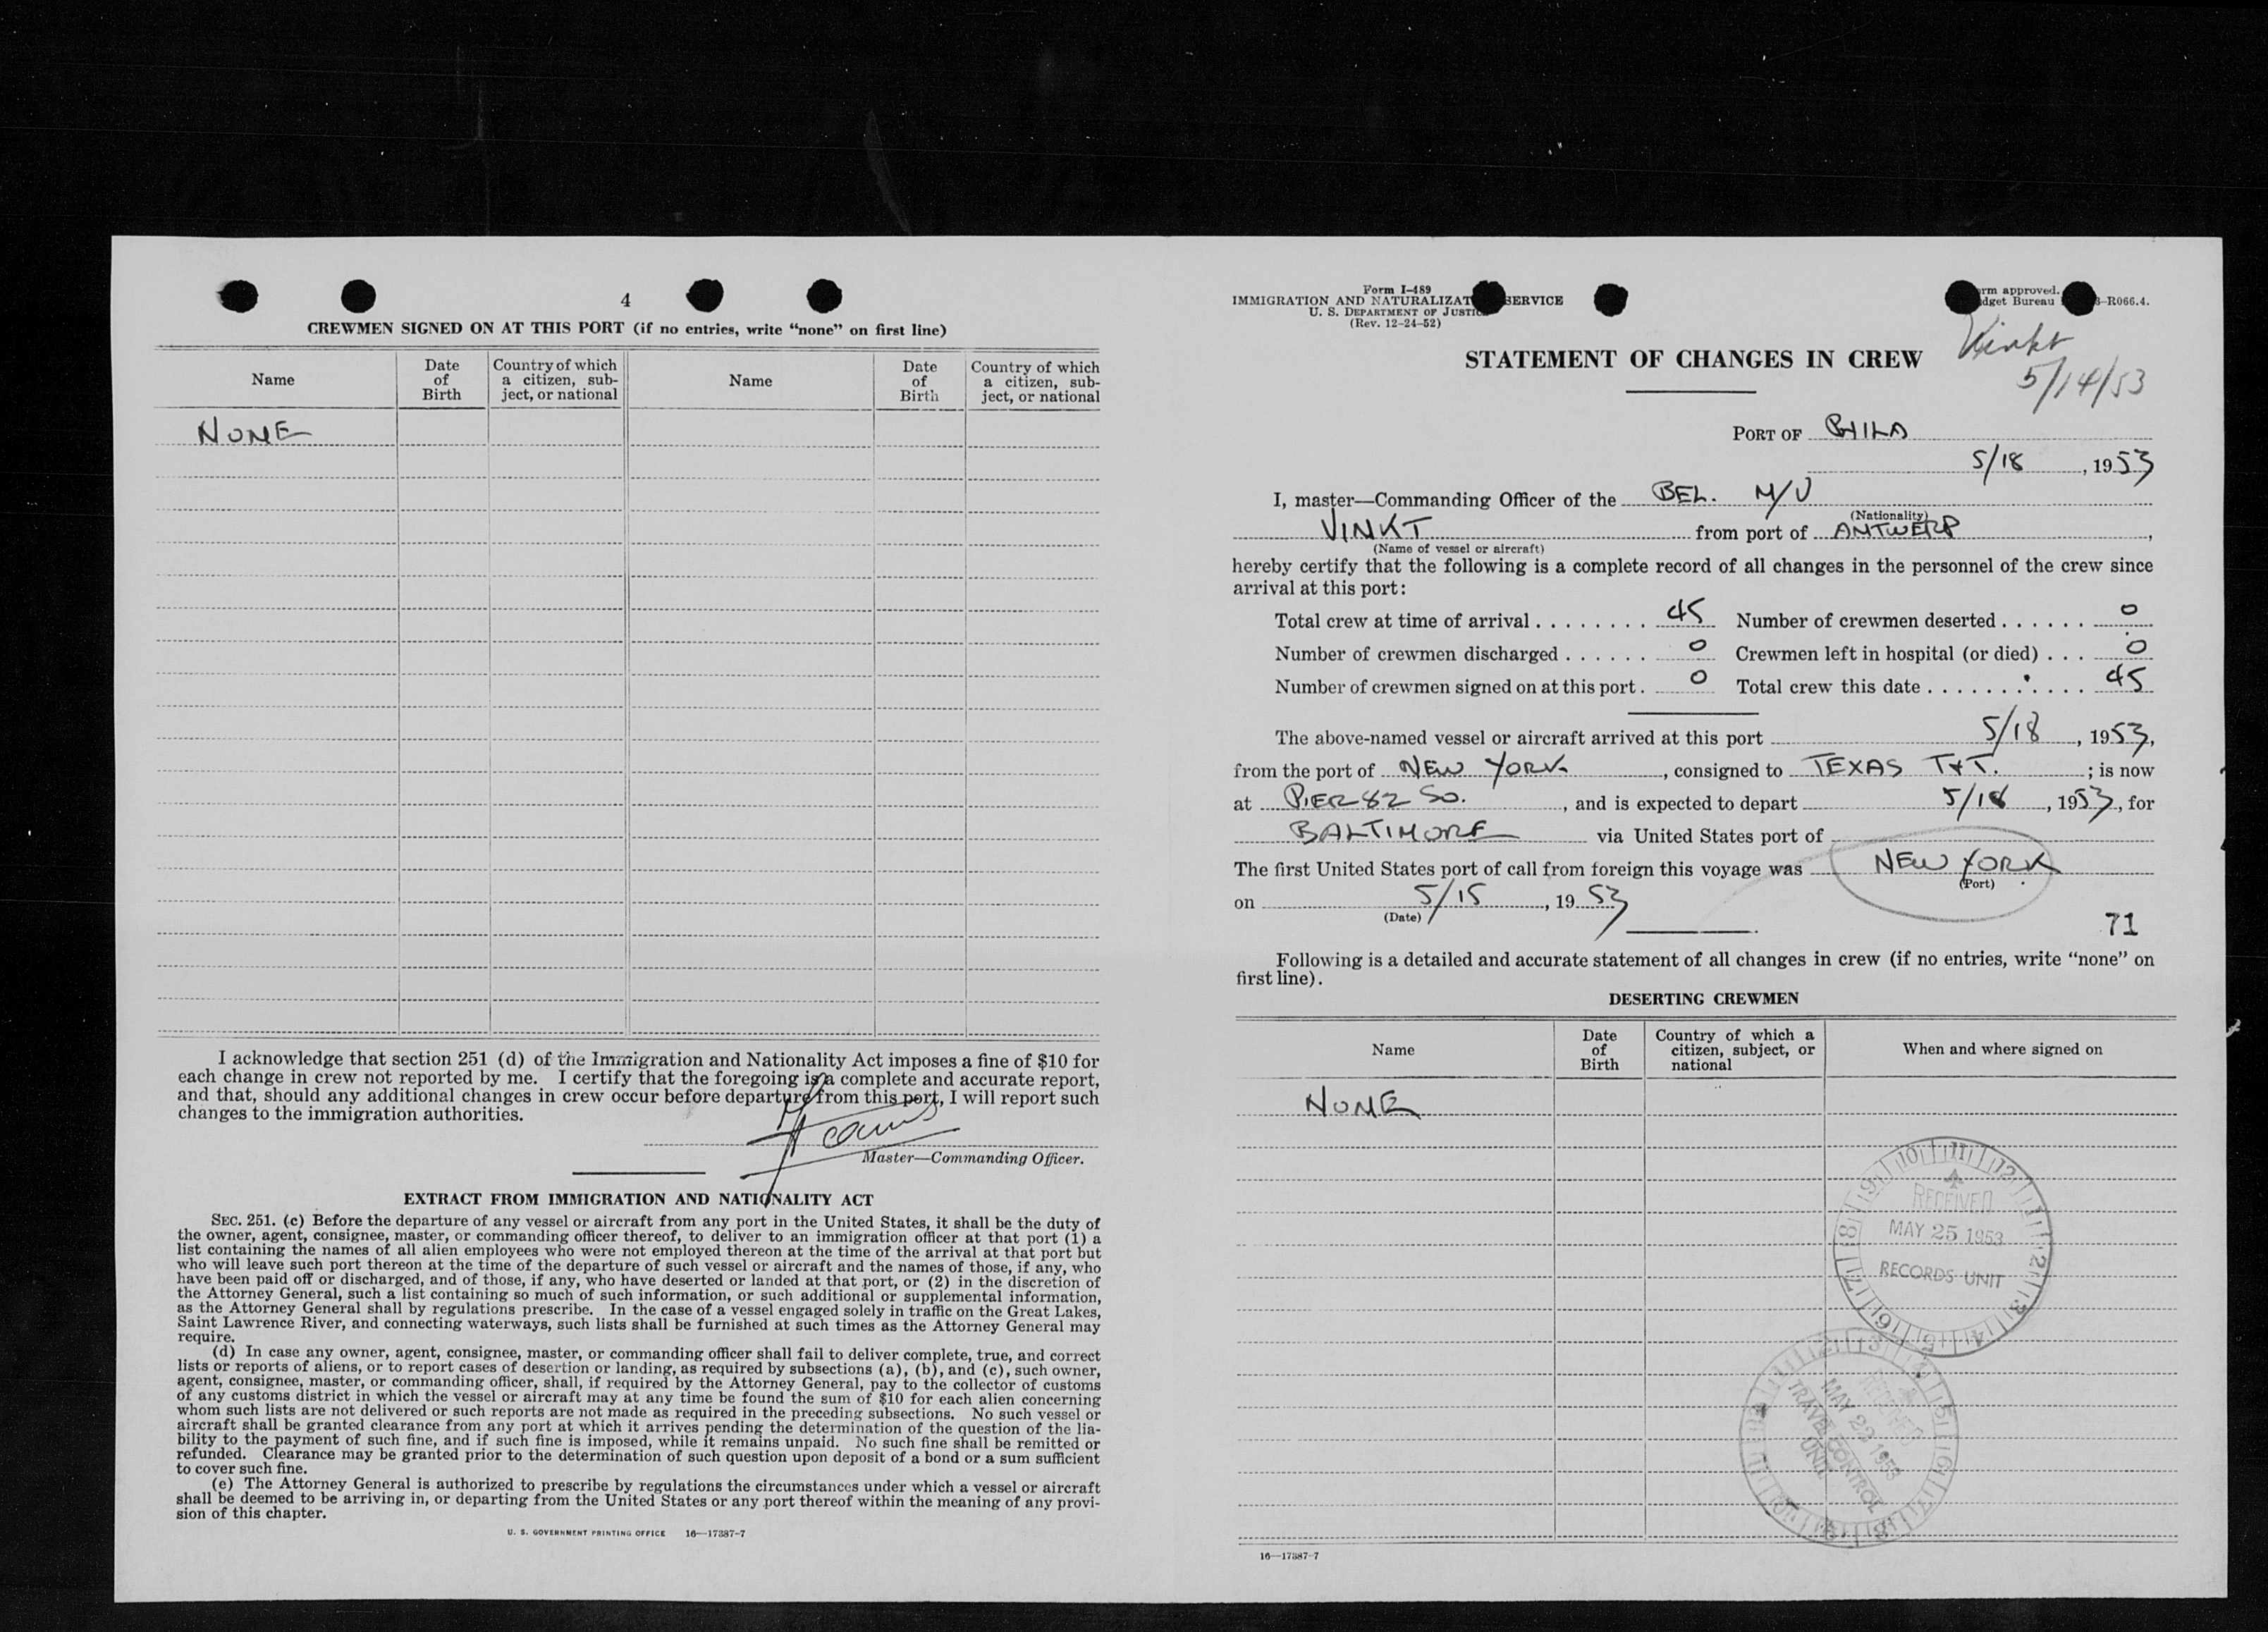 4
CREWMEN SIGNED ON AT THIS PORT (if no entries, write “none” on first line)
Name
Date of Birth
Country of which a citizen, sub-ject, or national
Name
Date of Birth
Country of which a citizen, sub-ject, or national
NONE
I acknowledge that section 251 (d) of the Immigration and Nationality Act imposes a fine of $10 for
each change in crew not reported by me. I certify that the foregoing is a complete and accurate report,
and that, should any additional changes in crew occur before departure from this port, I will report such
changes to the immigration authorities.
Master—Commanding Officer.
EXTRACT FROM IMMIGRATION AND NATIONALITY ACT
SEC. 251. (c) Before the departure of any vessel or aircraft from any port in the United States, it shall be the duty of
the owner, agent, consignee, master, or commanding officer thereof, to deliver to an immigration officer at that port (1) a
list containing the names of all alien employees who were not employed thereon at the time of the arrival at that port but
who will leave such port thereon at the time of the departure of such vessel or aircraft and the names of those, if any, who
have been paid off or discharged, and of those, if any, who have deserted or landed at that port, or (2) in the discretion of
the Attorney General, such a list containing so much of such information, or such additional or supplemental information,
as the Attorney General shall by regulations prescribe. In the case of a vessel engaged solely in traffic on the Great Lakes,
Saint Lawrence River, and connecting waterways, such lists shall be furnished at such times as the Attorney General may
require.
(d) In case any owner, agent, consignee, master, or commanding officer shall fail to deliver complete, true, and correct
lists or reports of aliens, or to report cases of desertion or landing, as required by subsections (a), (b), and (c), such owner,
agent, consignee, master, or commanding officer, shall, if required by the Attorney General, pay to the collector of customs
of any customs district in which the vessel or aircraft may at any time be found the sum of $10 for each alien concerning
whom such lists are not delivered or such reports are not made as required in the preceding subsections. No such vessel or
aircraft shall be granted clearance from any port at which it arrives pending the determination of the question of the lia-
bility to the payment of such fine, and if such fine is imposed, while it remains unpaid. No such fine shall be remitted or
refunded. Clearance may be granted prior to the determination of such question upon deposit of a bond or a sum sufficient
to cover such fine.
(e) The Attorney General is authorized to prescribe by regulations the circumstances under which a vessel or aircraft
shall be deemed to be arriving in, or departing from the United States or any port thereof within the meaning of any provi-
sion of this chapter.
U. S. GOVERNMENT PRINTING OFFICE 16—17387-7
Form I-489
IMMIGRATION AND NATURALIZAT SERVICE
U. S. DEPARTMENT OF JUSTIC
(Rev. 12-24-52)
rm approved.
dget Bureau -R066.4.
Vinkt
5/14/53
STATEMENT OF CHANGES IN CREW
PORT OF PHILA
5/18, 1953
I, master—Commanding Officer of the BEL. M/V
(Nationality)
VINKT from port of ANTWERP,
(Name of vessel or aircraft)
hereby certify that the following is a complete record of all changes in the personnel of the crew since
arrival at this port:
Total crew at time of arrival ........ 45 Number of crewmen deserted ...... 0
Number of crewmen discharged ...... 0 Crewmen left in hospital (or died) ... 0
Number of crewmen signed on at this port. 0 Total crew this date .......... 45
The above-named vessel or aircraft arrived at this port 5/18, 1953,
from the port of NEW YORK, consigned to TEXAS T&T. ; is now
at PIER 82 SO., and is expected to depart 5/18, 1953, for
BALTIMORE via United States port of
The first United States port of call from foreign this voyage was NEW YORK
(Port)
on 5/15, 1953
(Date)
71
Following is a detailed and accurate statement of all changes in crew (if no entries, write “none” on
first line).
DESERTING CREWMEN
Name
Date of Birth
Country of which a citizen, subject, or national
When and where signed on
NONE
RECEIVED
MAY 25 1953
RECORDS UNIT
RECEIVED
MAY 29 1953
TRAVEL CONTROL
UNIT
16—17387-7